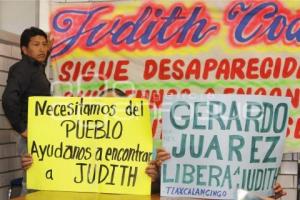 Judith
SIGUE DESAPARECIDA
Necesitamos del
PUEBLO
Ayudanos a encontrar
a JUDITH
GERARDO
JUAREZ
LIBERA a JUDITH
TLAXCALANCINGO